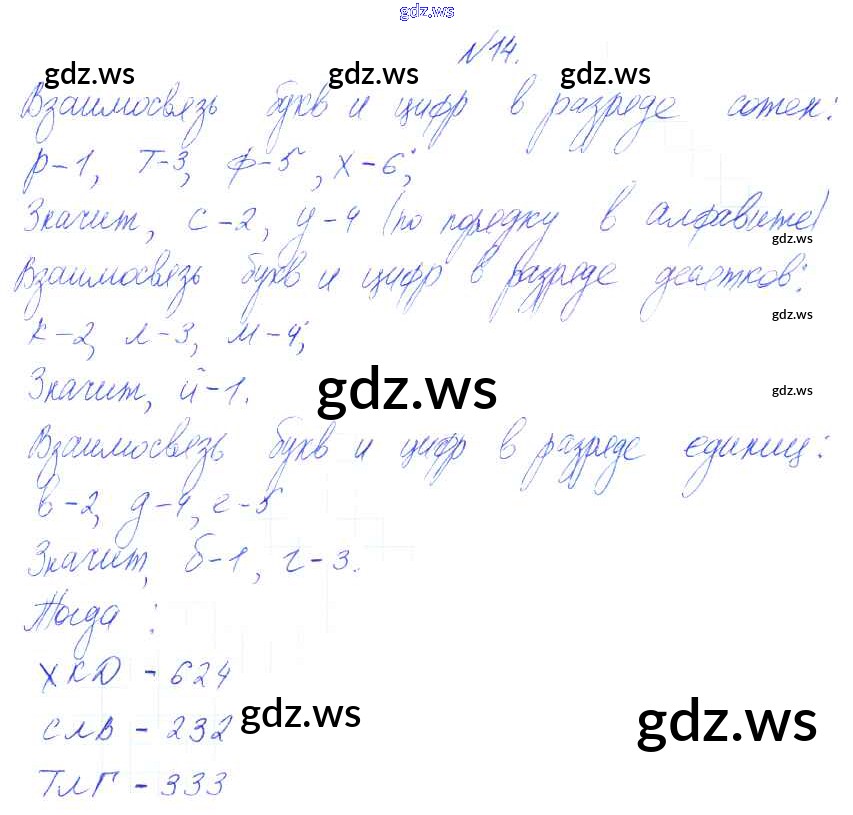 gdz.ws
№14.
gdz.ws gdz.ws gdz.ws
Взаимосвязь букв и цифр в разряде сотен:
р-1, т-3, ф-5, х-6;
Значит, с-2, у-4 (по порядку в алфавите)
gdz.ws
Взаимосвязь букв и цифр в разряде десятков:
gdz.ws
к-2, л-3, м-4;
Значит, й-1.
gdz.ws gdz.ws
Взаимосвязь букв и цифр в разряде единиц:
в-2, д-4, е-5
Значит, б-1, г-3.
Тогда:
ХКД - 624
СЛВ - 232
gdz.ws gdz.ws
ТЛГ - 333